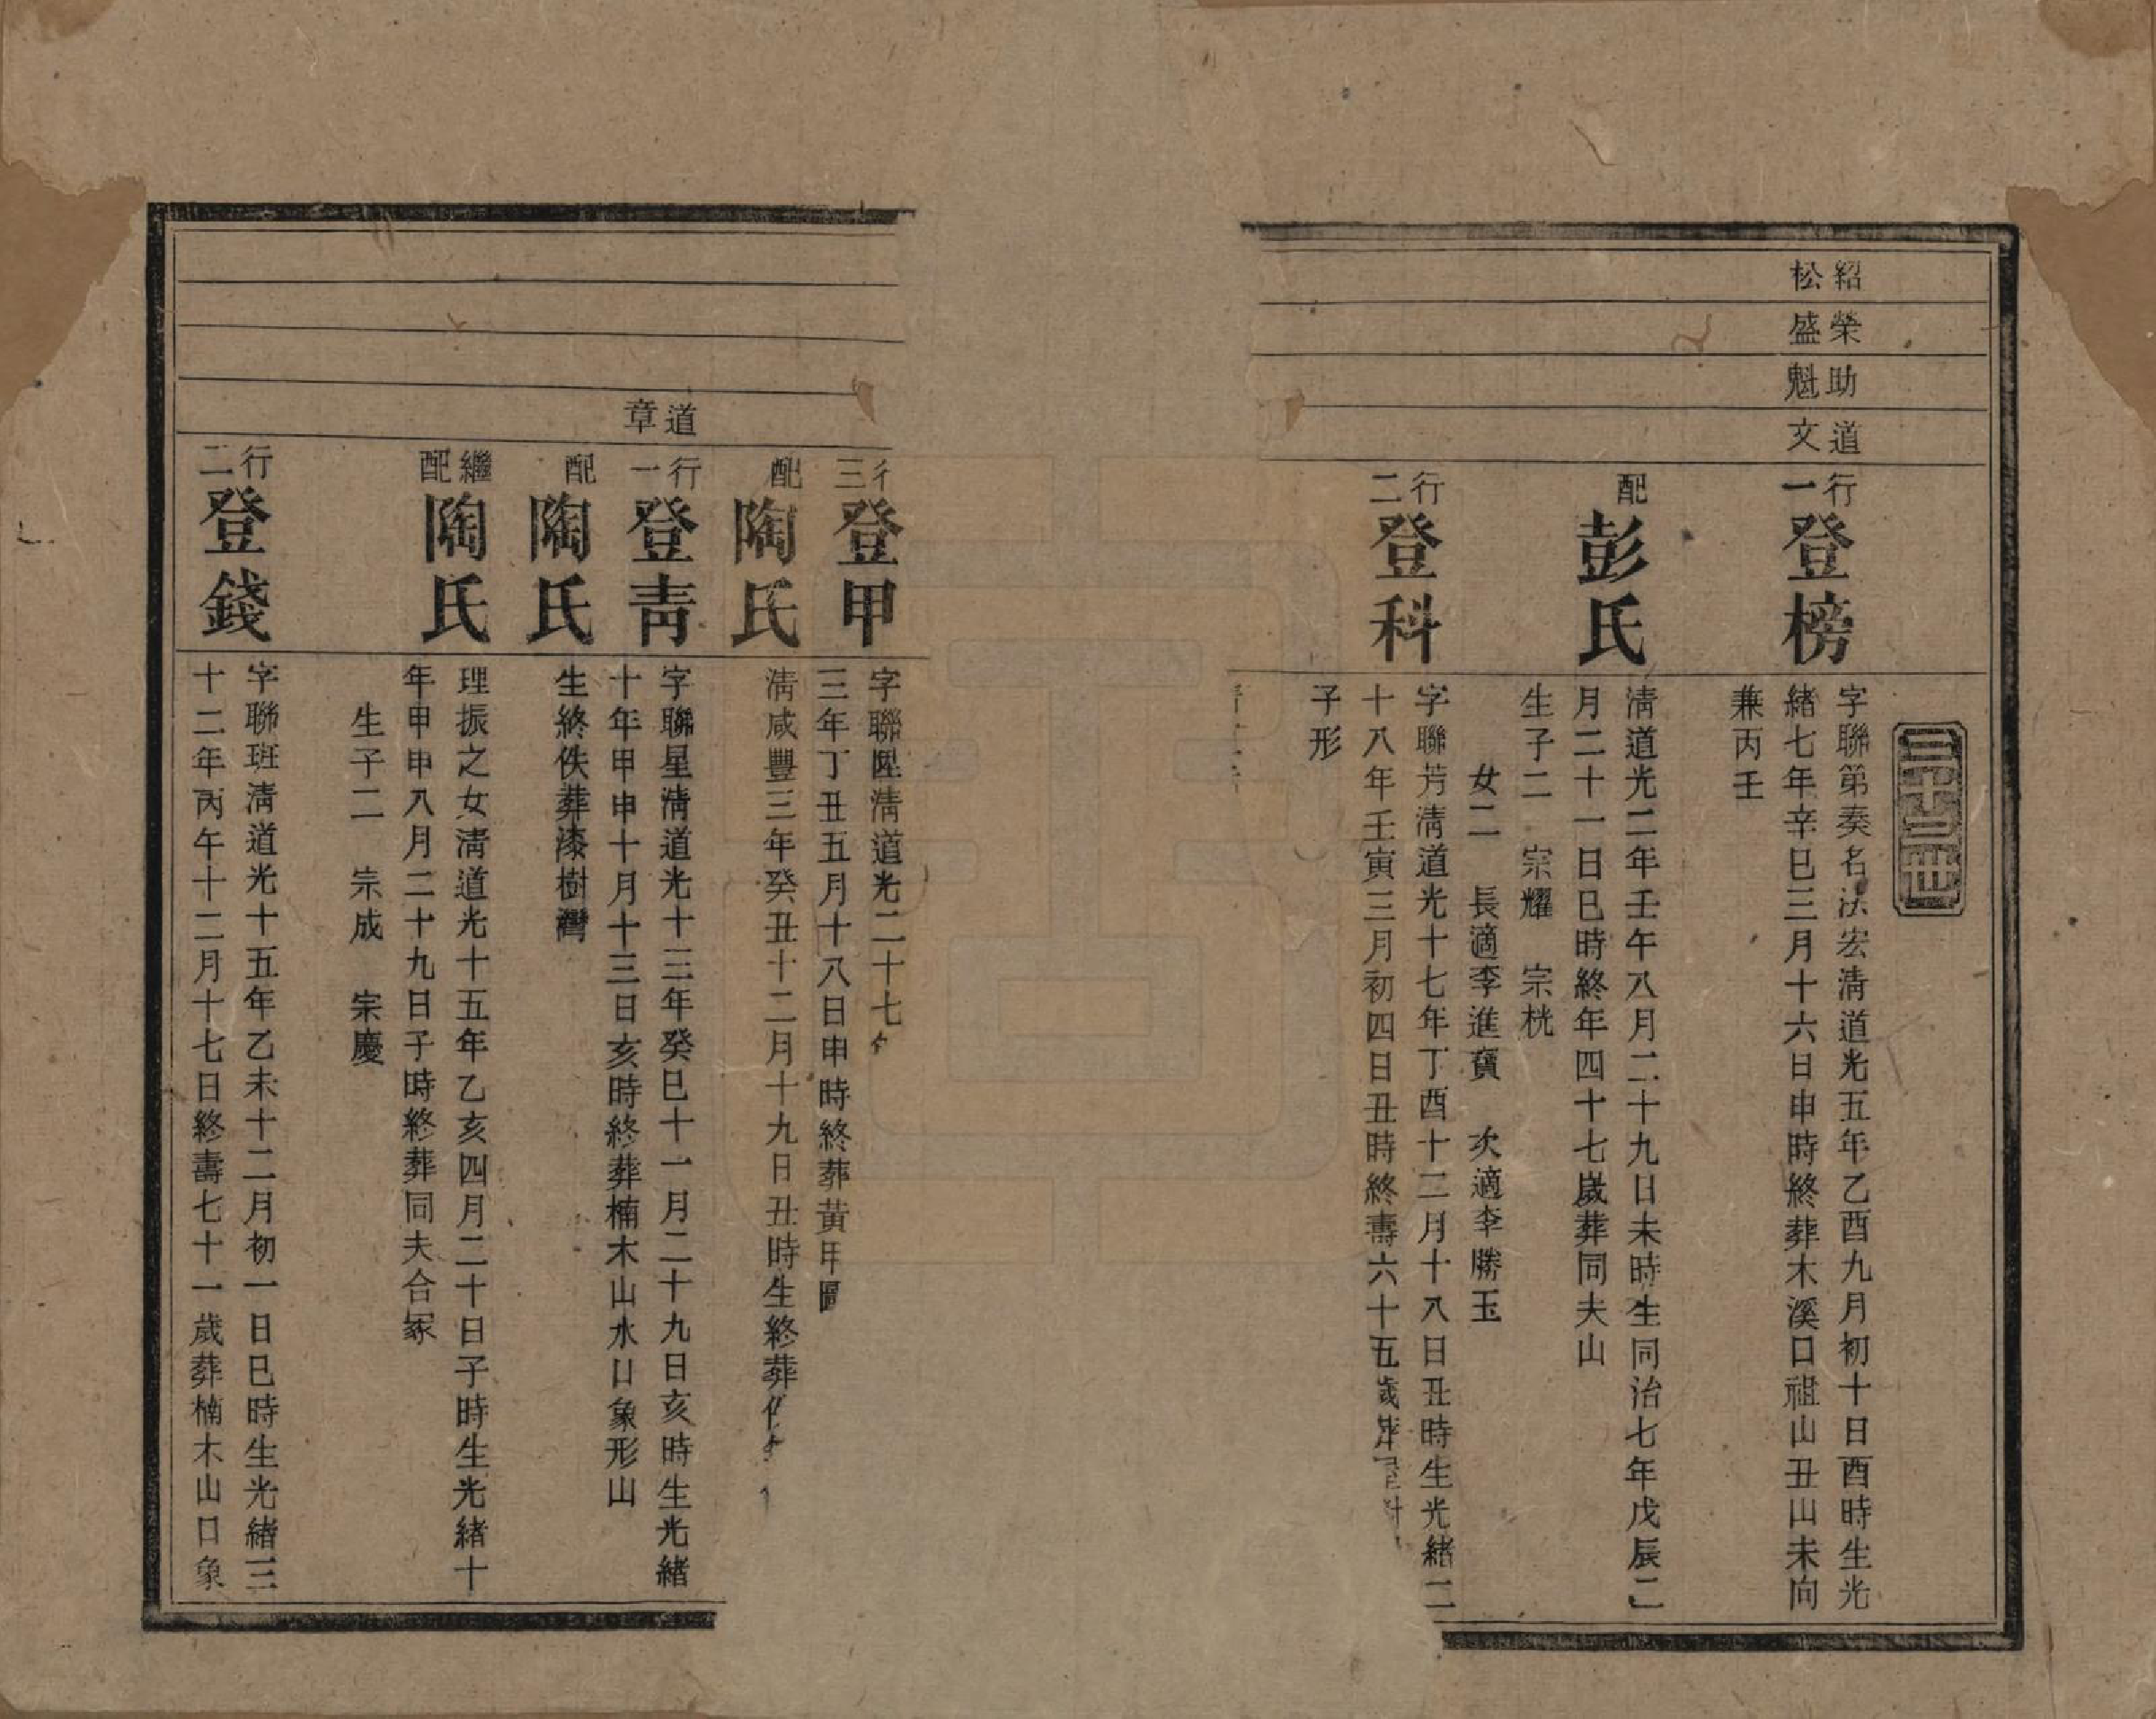 三十三世
紹松
榮盛
助魁
道文
行一
登榜
字聯第奏名法宏清道光五年乙酉九月初十日酉時生光
緒七年辛巳三月十六日申時終葬木溪口祖山丑山未向
兼丙壬
配
彭氏
清道光二年壬午八月二十九日未時生同治七年戊辰二
月二十一日巳時終年四十七歲葬同夫山
生子二 宗耀 宗桄
女二 長適李進寶 次適李勝玉
行二
登科
字聯芳清道光十七年丁酉十二月十八日丑時生光緒二
十八年壬寅三月初四日丑時終壽六十五歲
子形
行三
登甲
字聯陞清道光二十七
三年丁丑五月十八日申時終葬黃
配
陶氏
清咸豐三年癸丑十二月十九日丑時生終葬
道章
行一
登青
字聯星清道光十三年癸巳十一月二十九日亥時生光緒
十年甲申十月十三日亥時終葬楠木山水口象形山
配
陶氏
生終佚葬漆樹灣
繼配
陶氏
理振之女清道光十五年乙亥四月二十日子時生光緒十
年甲申八月二十九日子時終葬同夫合冢
生子二 宗成 宗慶
行二
登錢
字聯班清道光十五年乙未十二月初一日巳時生光緒三
十二年丙午十二月十七日終壽七十一歲葬楠木山口象